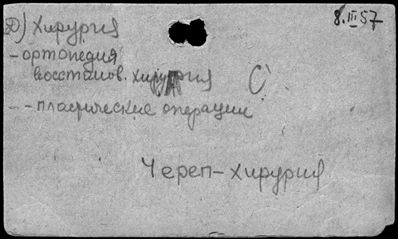 8.III 57
Д) Хирургия
- ортопедия
восстанов. хирургия С
- - пластические операции
Череп-хирургия